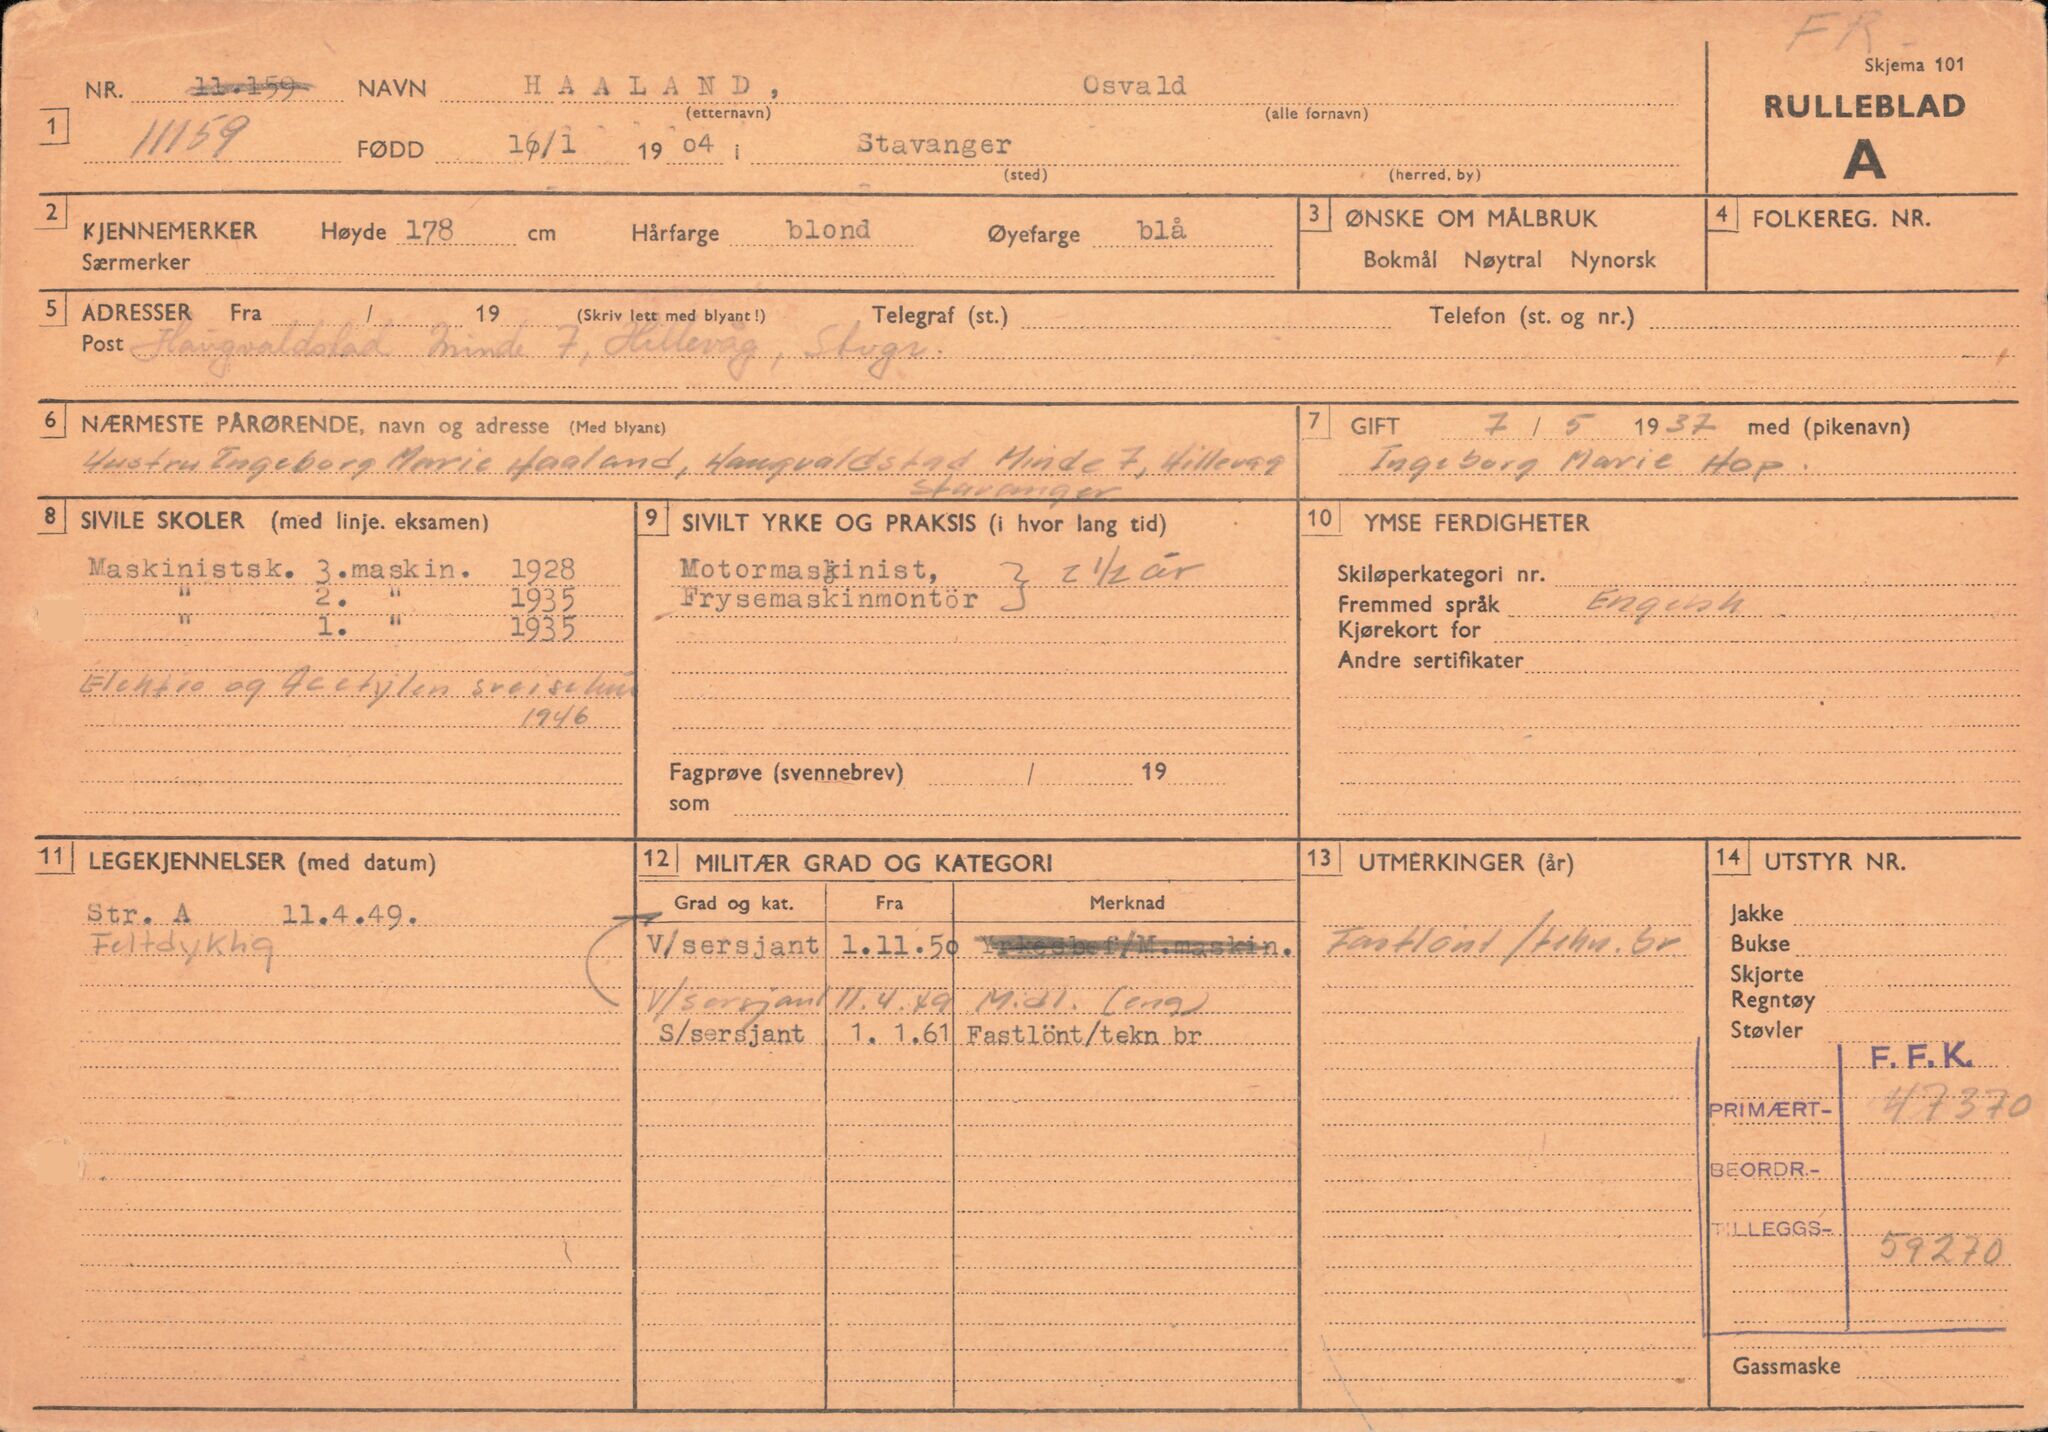 FR
Skjema 101
RULLEBLAD
A
1
NR. 11.159 NAVN HAALAND, Osvald
(etternavn) (alle fornavn)
11159 FØDD 16/1 1904 i Stavanger
(sted) (herred, by)
2 KJENNEMERKER Høyde 178 cm Hårfarge blond Øyefarge blå
Særmerker
3 ØNSKE OM MÅLBRUK
Bokmål Nøytral Nynorsk
4 FOLKEREG. NR.
5 ADRESSER Fra / 19 (Skriv lett med blyant!) Telegraf (st.) Telefon (st. og nr.)
Post Haugvaldstad Minde 7, Hillevåg, Stvgr.
6 NÆRMESTE PÅRØRENDE, navn og adresse (Med blyant)
Hustru Ingeborg Marie Haaland, Haugvaldstad Minde 7, Hillevåg
Stavanger
7 GIFT 7 / 5 1937 med (pikenavn)
Ingeborg Marie Hop.
8 SIVILE SKOLER (med linje. eksamen)
Maskinistsk. 3.maskin. 1928
" 2. " 1935
" 1. " 1935
Elektro og Acetylen sveisekur
1946
9 SIVILT YRKE OG PRAKSIS (i hvor lang tid)
Motormaskinist, } 2 1/2 år
Frysemaskinmontör
Fagprøve (svennebrev) / 19
som
10 YMSE FERDIGHETER
Skiløperkategori nr.
Fremmed språk Engelsk
Kjørekort for
Andre sertifikater
11 LEGEKJENNELSER (med datum)
Str. A 11.4.49.
Feltdykhg
12 MILITÆR GRAD OG KATEGORI
Grad og kat. Fra Merknad
V/sersjant 1.11.50 Yrkesbef/M.maskin.
V/sersjant 11.4.49 Midl. (eng)
S/sersjant 1. 1.61 Fastlönt/tekn br
13 UTMERKINGER (år)
Fastlönt/tekn. br
14 UTSTYR NR.
Jakke
Bukse
Skjorte
Regntøy
Støvler
F. F. K.
PRIMÆRT- 47370
BEORDR.-
TILLEGGS- 59270
Gassmaske